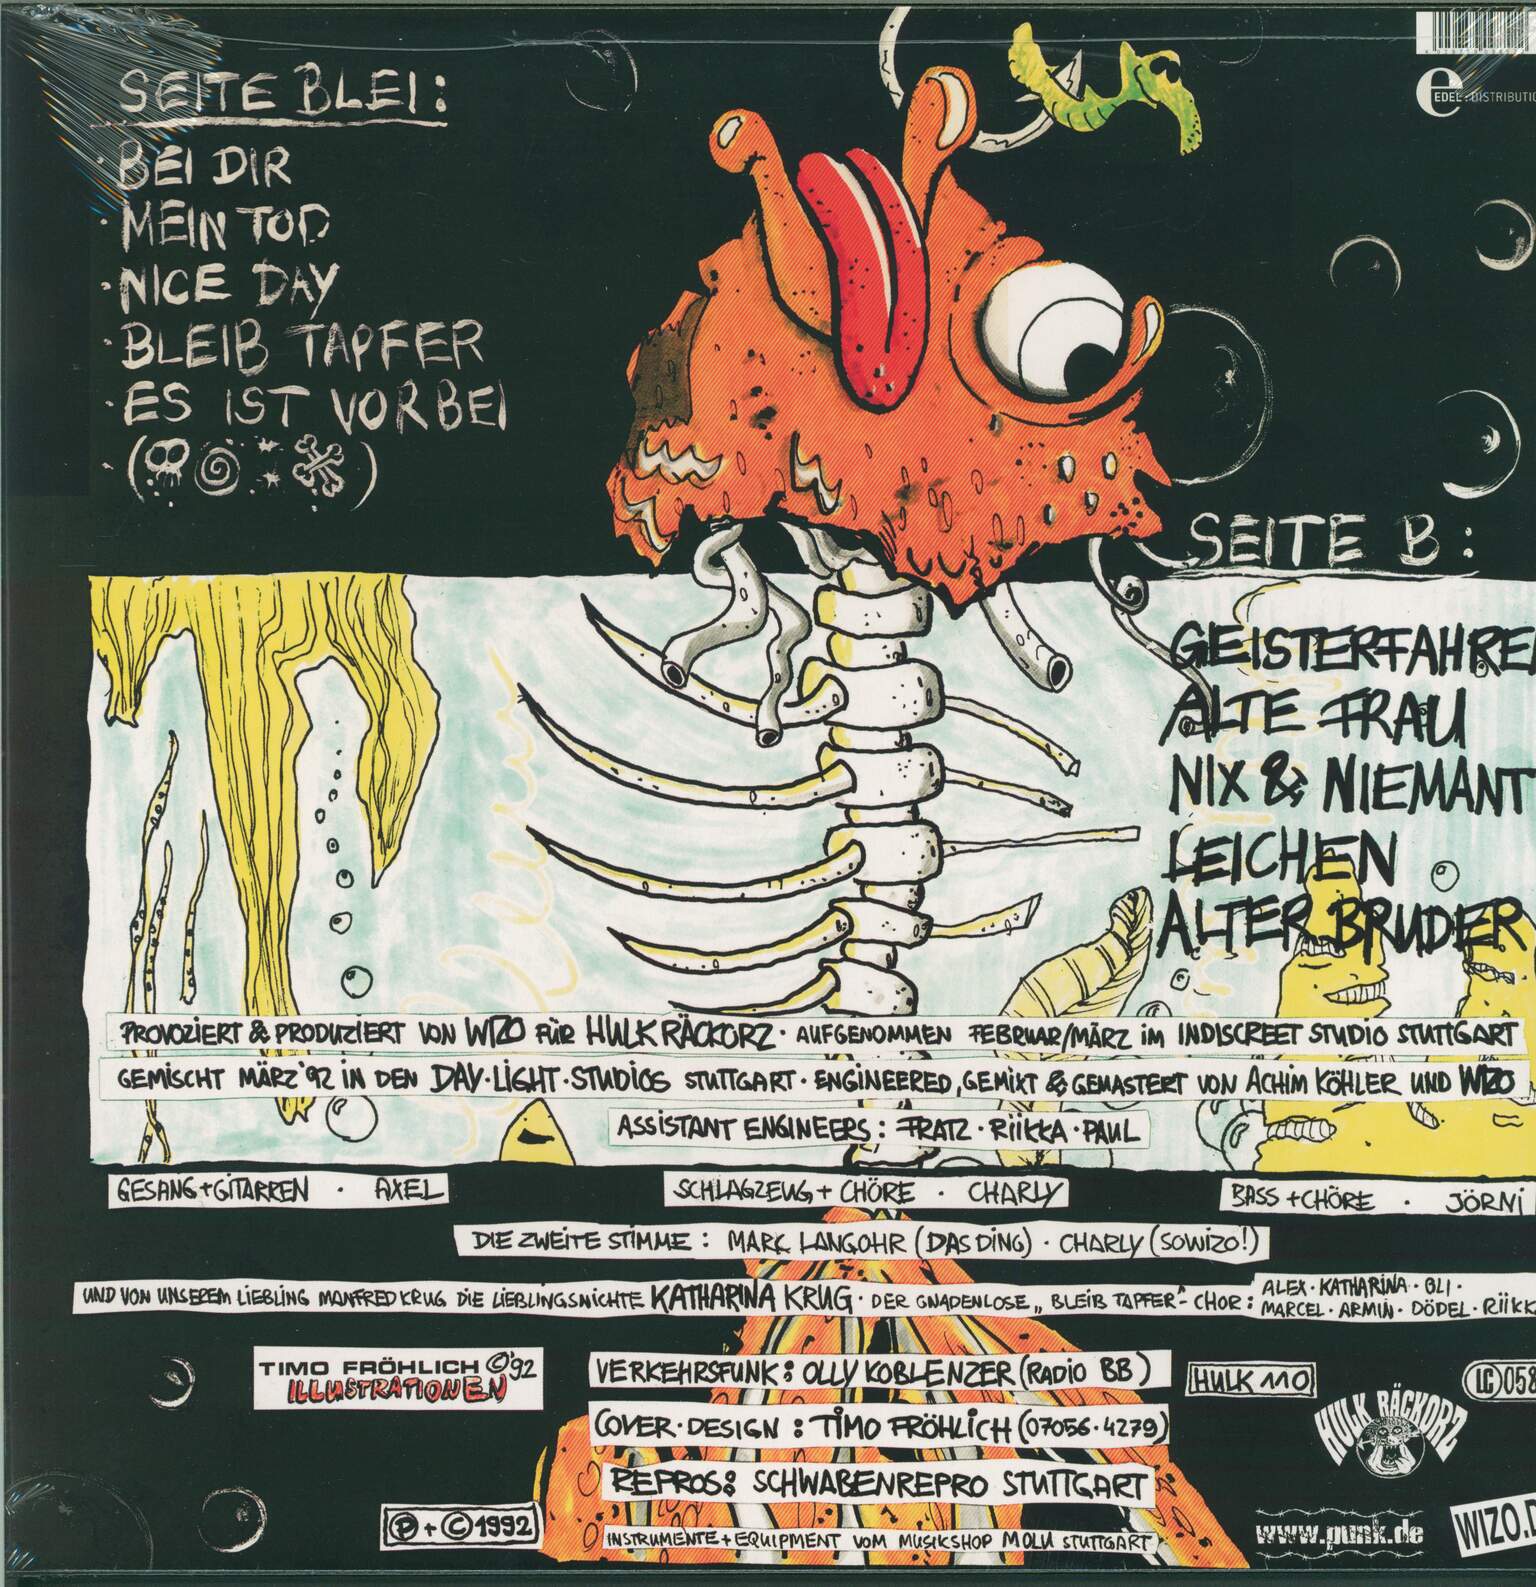 SEITE BLEI:
· BEI DIR
· MEIN TOD
· NICE DAY
· BLEIB TAPFER
· ES IST VORBEI
EDEL:DISTRIBUTIO
SEITE B:
GEISTERFAHRER
ALTE FRAU
NIX & NIEMANT
LEICHEN
ALTER BRUDER
PROVOZIERT & PRODUZIERT VON WIZO FÜR HULK RÄCKORZ · AUFGENOMMEN FEBRUAR/MÄRZ IM INDISCREET STUDIO STUTTGART
GEMISCHT MÄRZ '92 IN DEN DAY·LIGHT·STUDIOS STUTTGART · ENGINEERED, GEMIXT & GEMASTERT VON ACHIM KÖHLER UND WIZO
ASSISTANT ENGINEERS: FRATZ · RIIKKA · PAUL
GESANG+GITARREN · AXEL
SCHLAGZEUG+CHÖRE · CHARLY
BASS+CHÖRE · JÖRNI
DIE ZWEITE STIMME: MARK LANGOHR (DAS DING) · CHARLY (SOWIZO!)
UND VON UNSEREM LIEBLING MANFRED KRUG DIE LIEBLINGSNICHTE KATHARINA KRUG · DER GNADENLOSE „BLEIB TAPFER"-CHOR: ALEX · KATHARINA · OLI ·
MARCEL · ARMIN · DÖDEL · RIIKK
TIMO FRÖHLICH ©'92
ILLUSTRATIONEN
VERKEHRSFUNK: OLLY KOBLENZER (RADIO BB)
HULK 110
LC 058
COVER·DESIGN: TIMO FRÖHLICH (07056·4279)
HULK RÄCKORZ
REPROS: SCHWABENREPRO STUTTGART
℗ + © 1992
INSTRUMENTE+EQUIPMENT VOM MUSIKSHOP MOLU STUTTGART
www.punk.de
WIZO.D